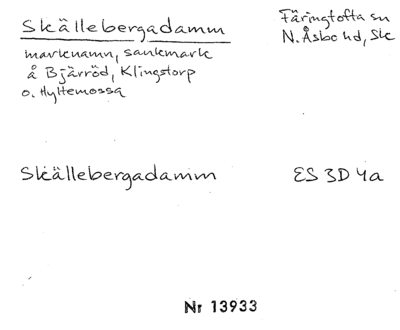 Skällebergadamm
Färingtofta sn
N. Åsbo hd, Sk
marknamn, sankmark
å Bjärröd, Klingstorp
o. Hyltemossa
Skällebergadamm
ES 3D 4a
Nr 13933